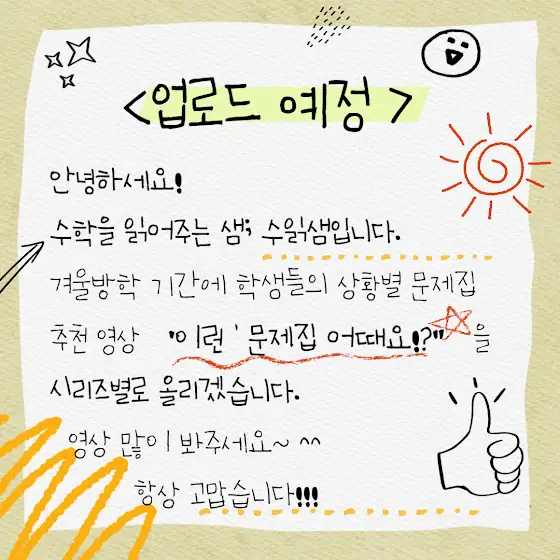 <업로드 예정 >
안녕하세요!
수학을 읽어주는 샘; 수읽샘입니다.
겨울방학 기간에 학생들의 상황별 문제집
추천 영상 "이런 ' 문제집 어때요!?" 을
시리즈별로 올리겠습니다.
영상 많이 봐주세요~ ^^
항상 고맙습니다!!!